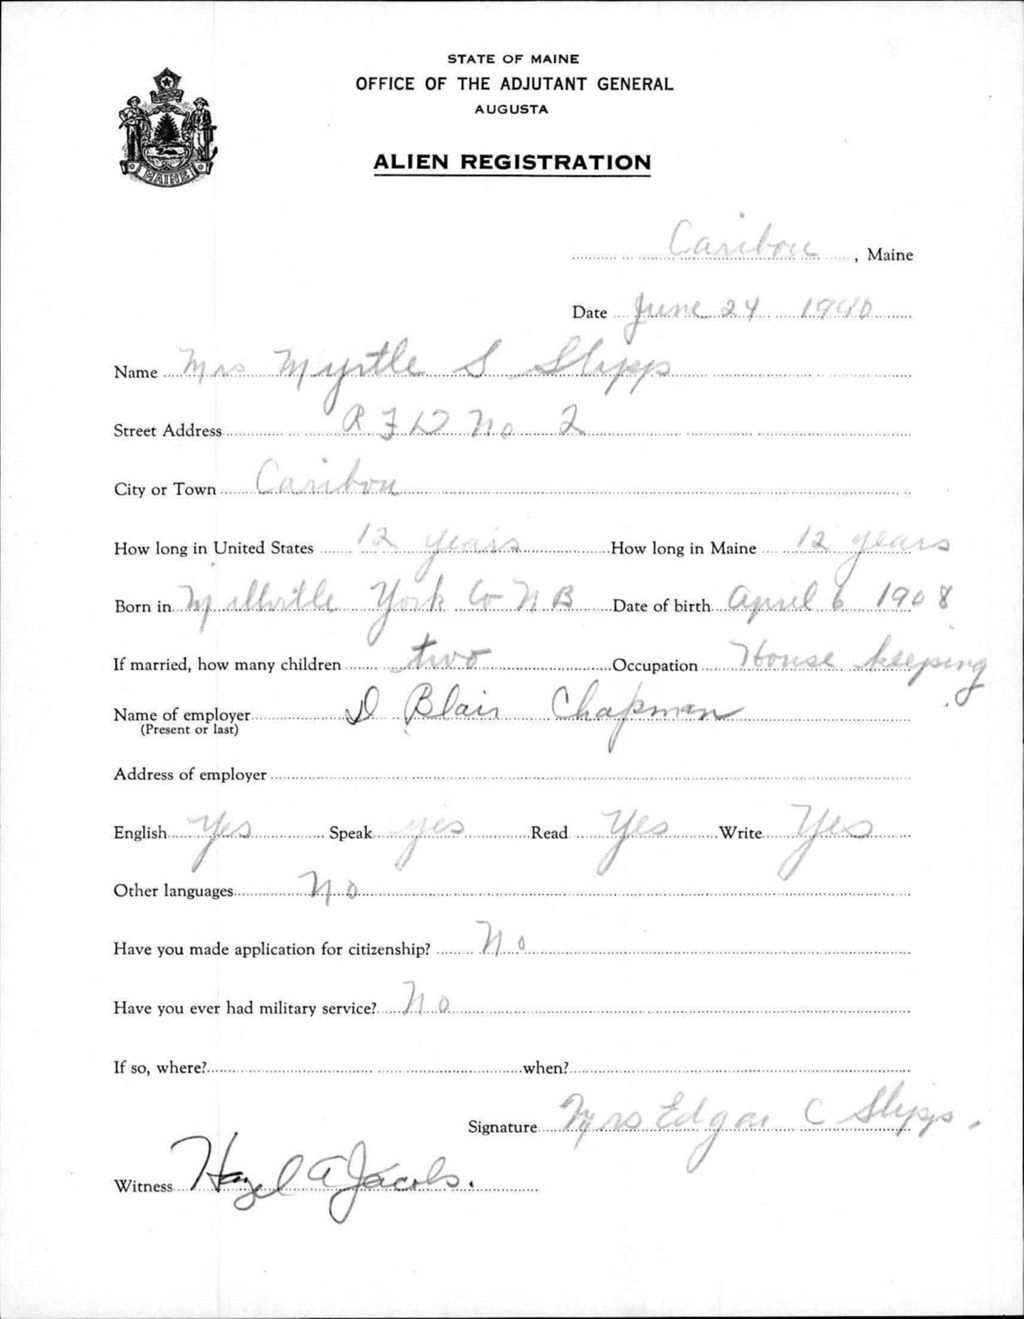 STATE OF MAINE
OFFICE OF THE ADJUTANT GENERAL
AUGUSTA
MAINE
ALIEN REGISTRATION
Caribou, Maine
Date June 24 1940
Name Mrs Myrtle S Slipp
Street Address R F D No 2
City or Town Caribou
How long in United States 12 years How long in Maine 12 years
Born in Millville York Co N B Date of birth April 6 1908
If married, how many children two Occupation House keeping
Name of employer D Blair Chapman
(Present or last)
Address of employer
English Yes Speak yes Read Yes Write Yes
Other languages No
Have you made application for citizenship? No
Have you ever had military service? No
If so, where? when?
Signature Mrs Edgar C Slipp.
Witness Hazel A Jacobs.